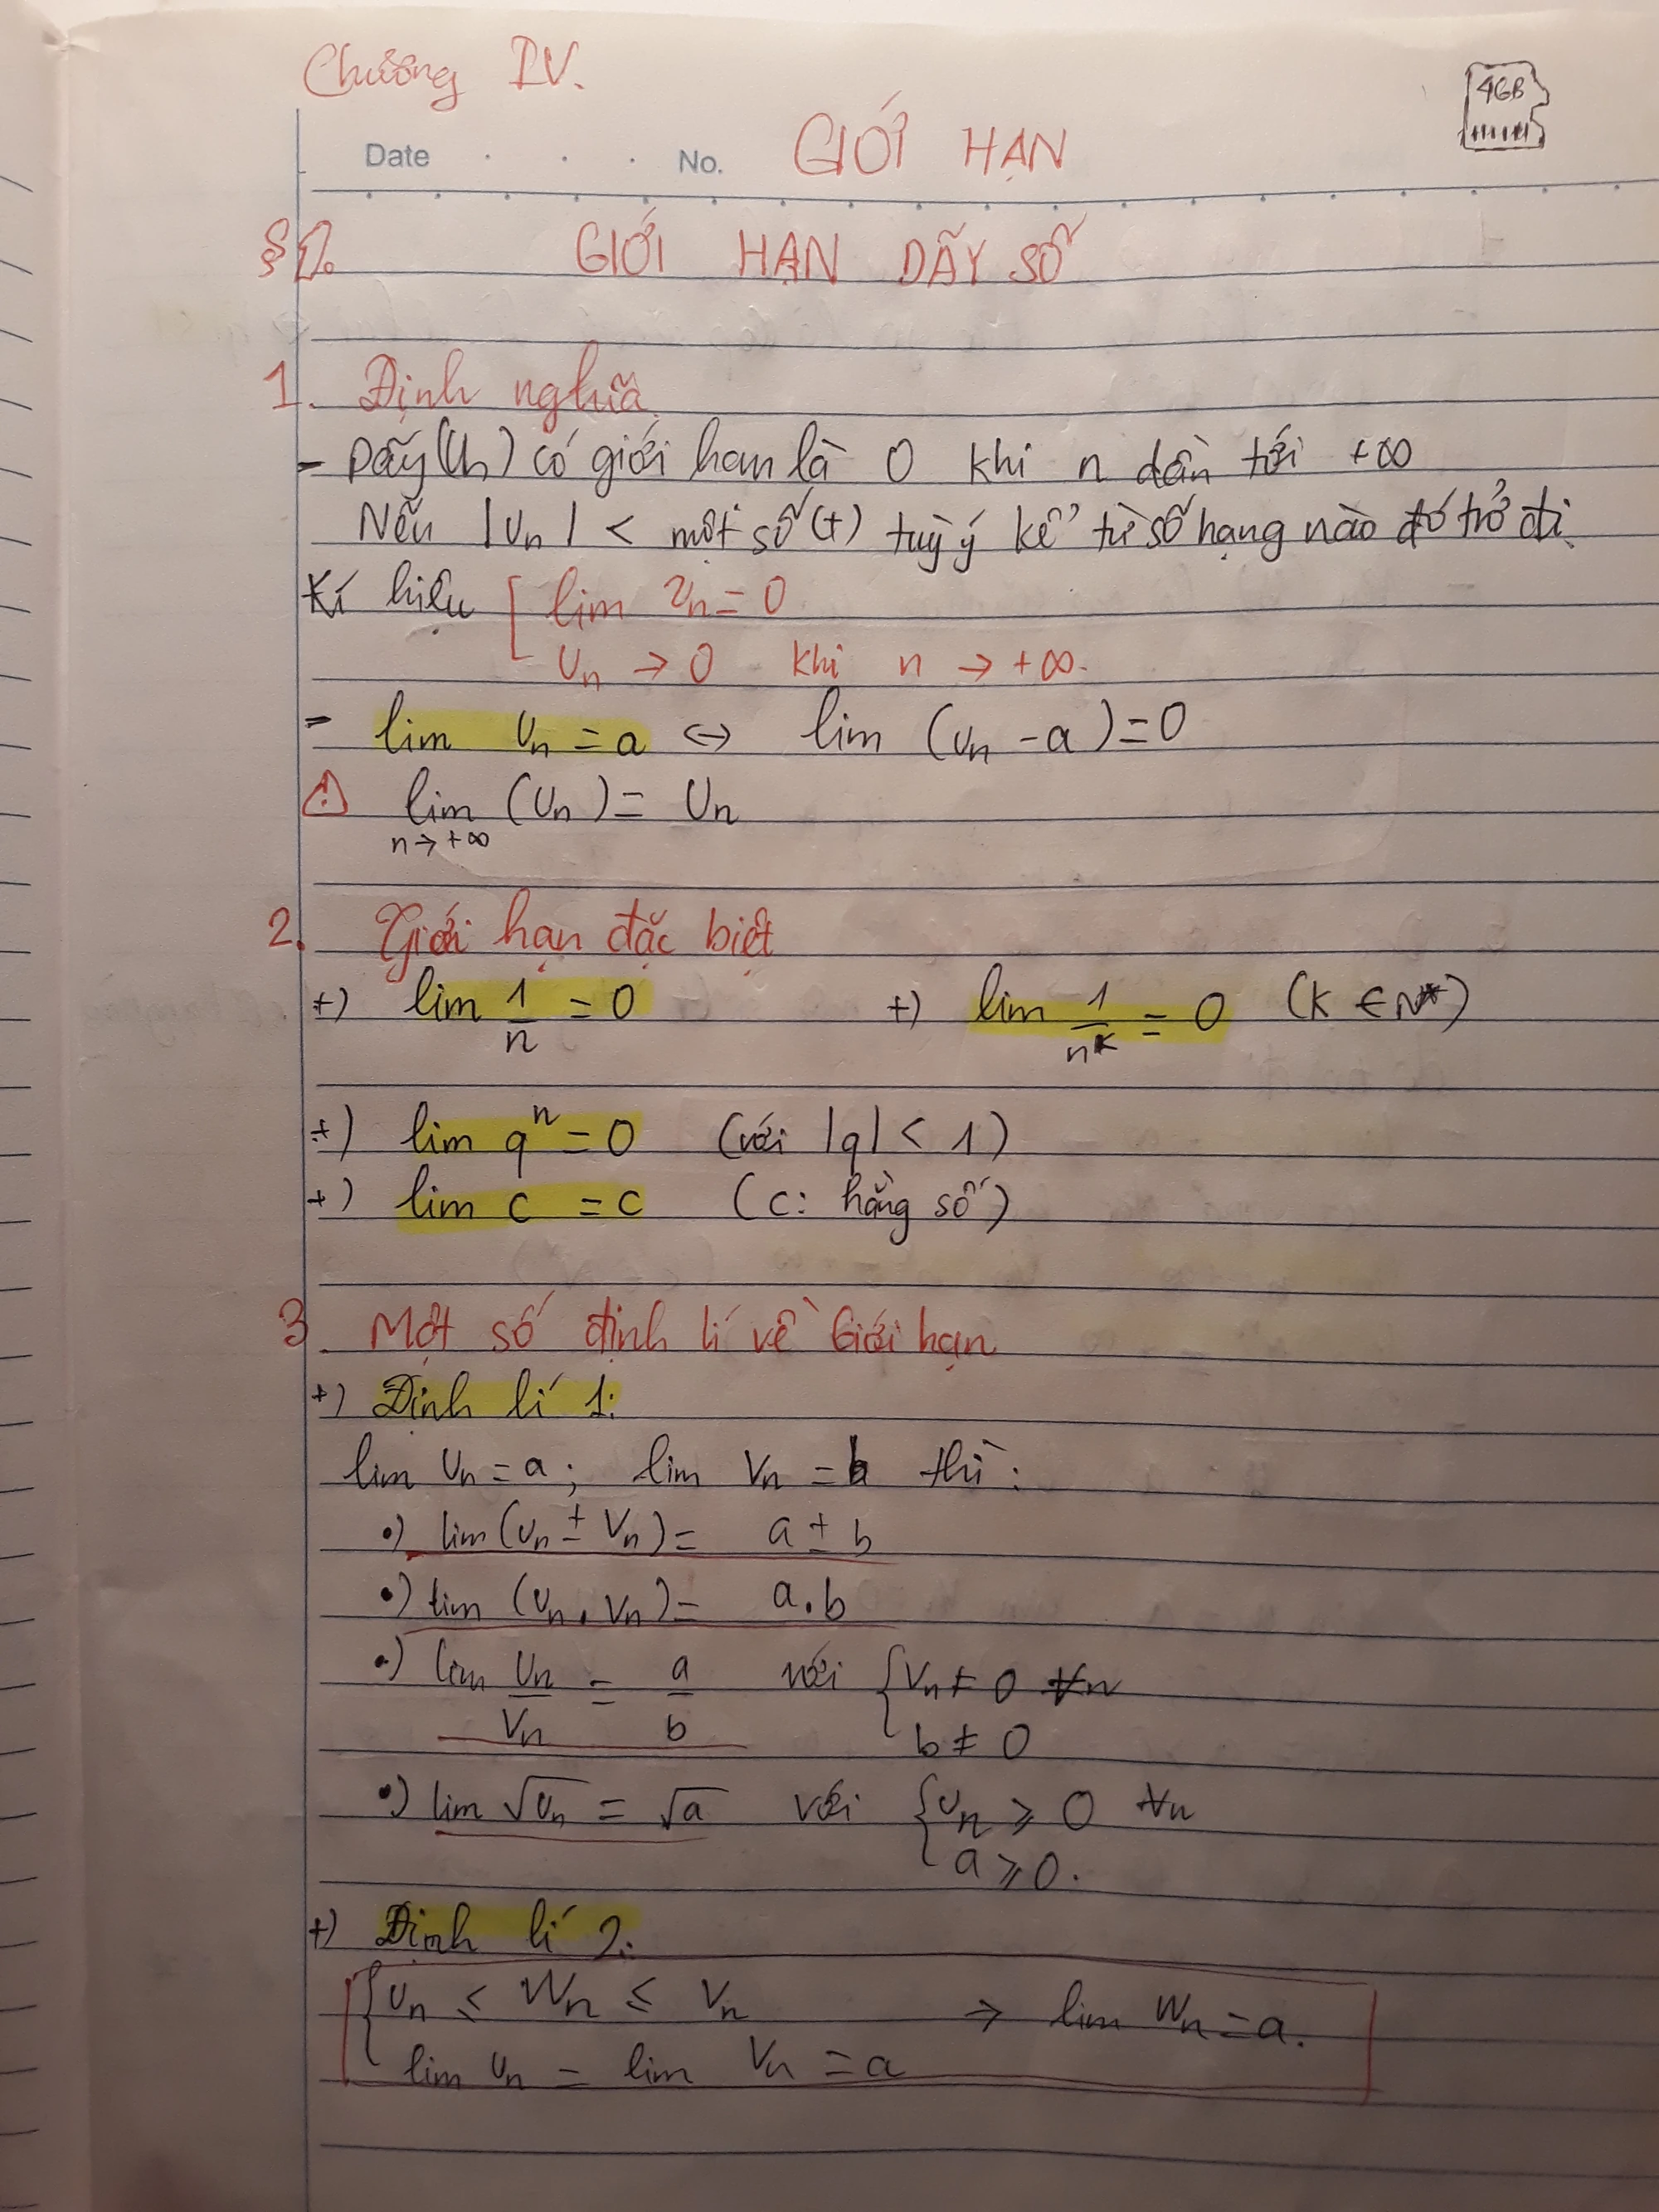 Chương IV.
4GB
Date No. GIỚI HẠN
§1. GIỚI HẠN DÃY SỐ
1. Định nghĩa
- Dãy (Un) có giới hạn là 0 khi n dần tới +∞
Nếu |Un| < một số (+) tuỳ ý kể từ số hạng nào đó trở đi.
Kí hiệu [ lim Un = 0
Un → 0 khi n → +∞.
- lim Un = a ⇔ lim (Un - a) = 0
⚠ lim (Un) = Un
n → +∞
2. Giới hạn đặc biệt
+) lim 1/n = 0 +) lim 1/n^k = 0 (k ∈ N*)
+) lim q^n = 0 (với |q| < 1)
+) lim c = c (c: hằng số)
3. Một số định lí về Giới hạn
+) Định lí 1:
lim Un = a; lim Vn = b thì:
•) lim (Un ± Vn) = a ± b
•) lim (Un . Vn) = a.b
•) lim Un/Vn = a/b với { Vn ≠ 0 ∀n
b ≠ 0
•) lim √Un = √a với { Un ⩾ 0 ∀n
a ⩾ 0.
+) Định lí 2:
{ Un ≤ Wn ≤ Vn ⇒ lim Wn = a.
lim Un = lim Vn = a